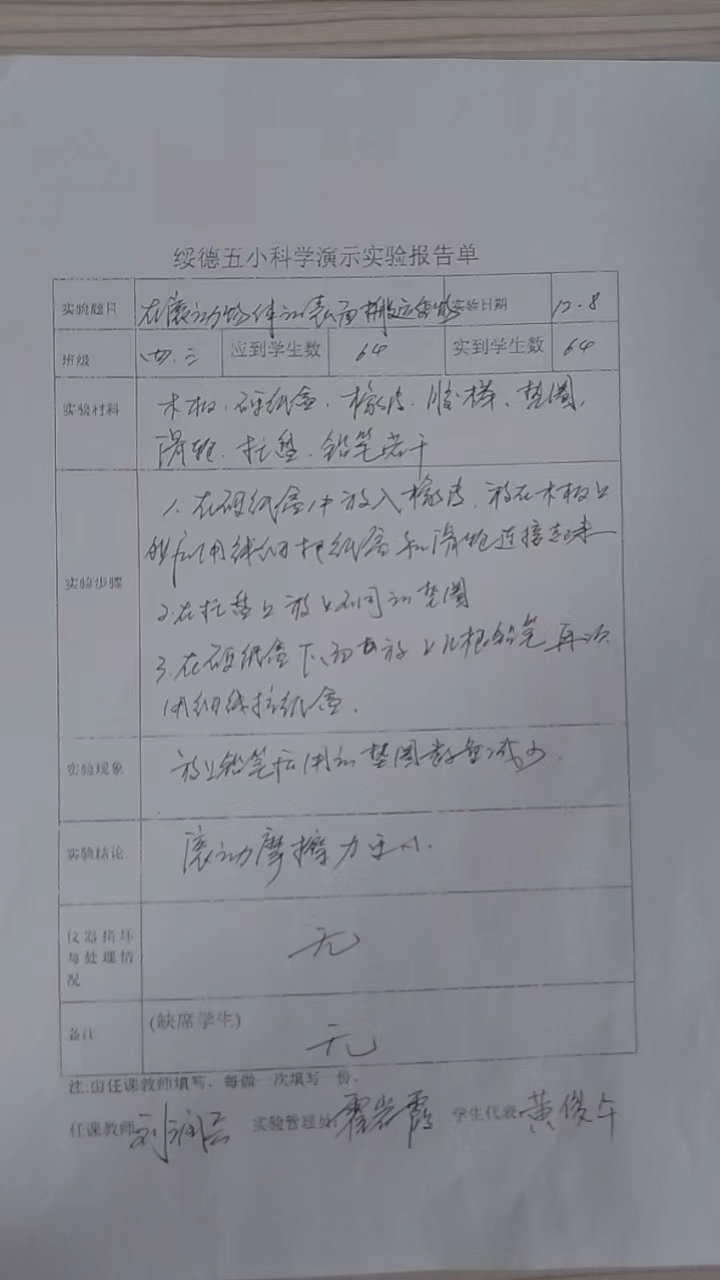 绥德五小科学演示实验报告单
实验题目 在滚动物体的表面搬运 实验日期 12.8
班级 四.三 应到学生数 64 实到学生数 64
实验材料 木板、硬纸盒、橡皮、垫圈、
滑轮、托盘、铅笔若干
实验步骤 1.在硬纸盒中放入橡皮,放在木板上
然后用线绳把纸盒和滑轮连接起来
2.在托盘上放上不同的垫圈
3.在硬纸盒下面放上几根铅笔再次
用细线拉纸盒.
实验现象 放上铅笔后用的垫圈数量减少.
实验结论 滚动摩擦力更小.
仪器损坏
与处理情
况 无
备注 (缺席学生)
无
注:由任课教师填写,每做一次填写一份。
任课教师 刘润 实验管理处 霍岩霞 学生代表 黄俊